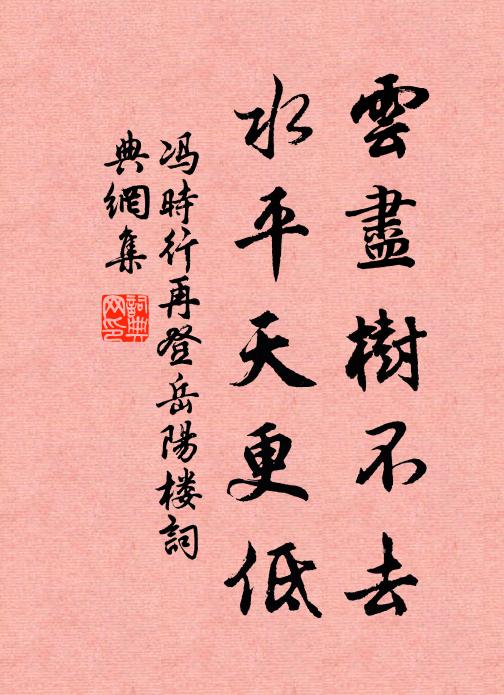 雲盡樹不去
水平天更低
冯時行再登岳陽楼詞
典網集
詞典
网印